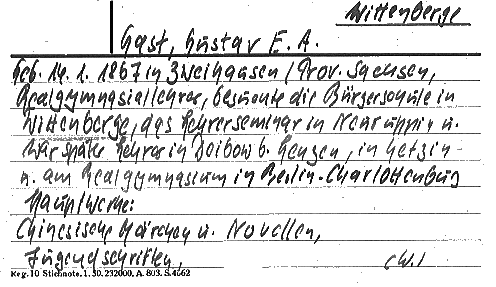 Wittenberge
Gast, Gustav E. A.
Geb. 14. 1. 1867 in Zweihausen / Prov. Sachsen,
Realgymnasiallehrer, besuchte die Bürgerschule in
Wittenberge, das Lehrerseminar in Neuruppin u.
war später Lehrer in Deibow b. Lenzen, in Ketzin
u. am Realgymnasium in Berlin-Charlottenburg
Hauptwerke:
Chinesische Märchen u. Novellen,
Jugendschriften, (W.)
Reg. 10 Stichnote. 1. 30. 232000. A. 803. S. 4662